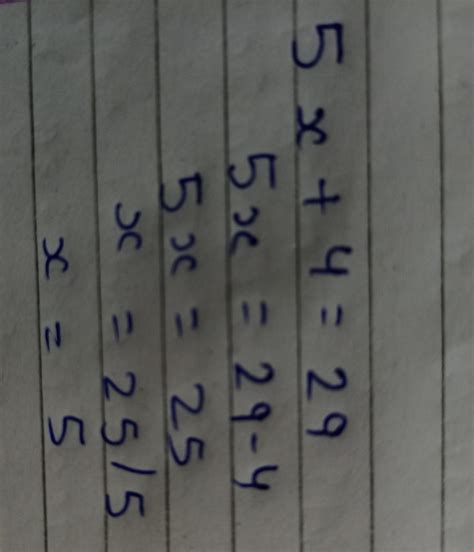 5x + 4 = 29
5x = 29-4
5x = 25
x = 25/5
x = 5